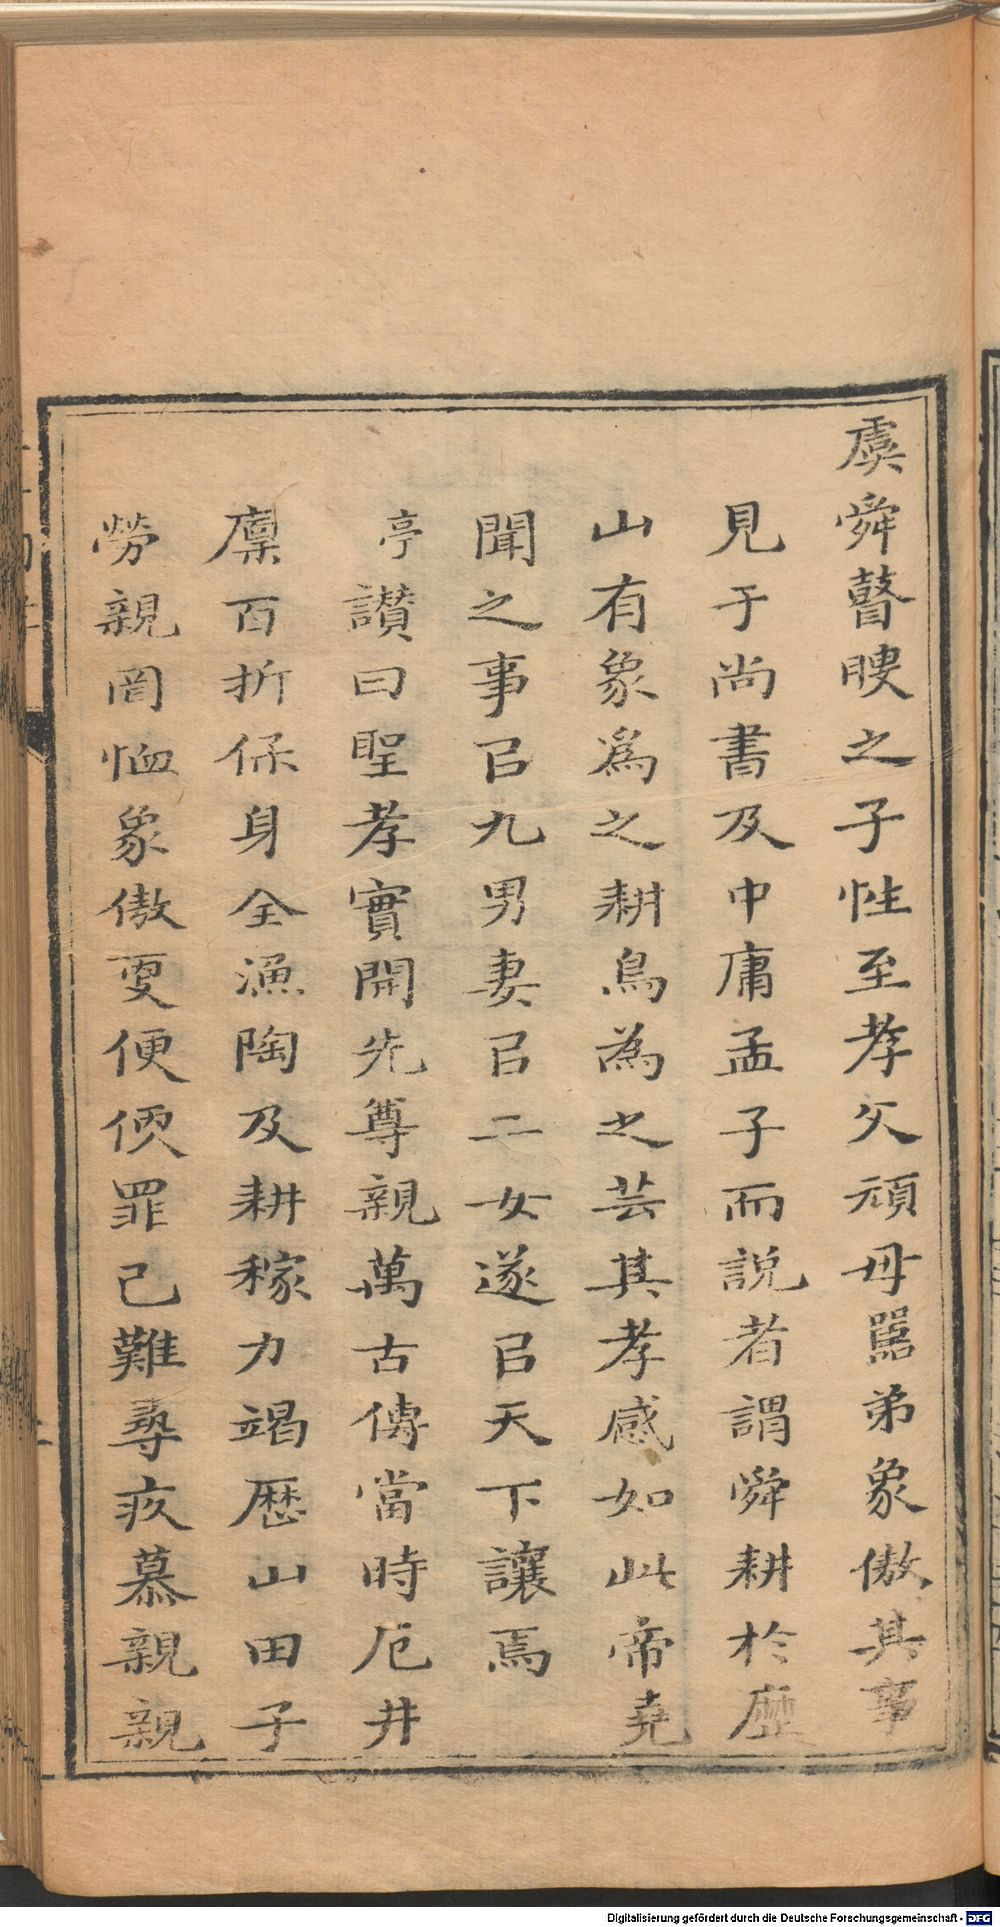 虞舜瞽瞍之子性至孝父頑母嚚弟象傲其事
見于尚書及中庸孟子而說者謂舜耕於歷
山有象爲之耕鳥為之芸其孝感如此帝堯
聞之事㠯九男妻㠯二女遂㠯天下讓焉
亭讃曰聖孝實開先尊親萬古傳當時厄井
廩百折保身全漁陶及耕稼力竭歴山田子
勞親罔恤象傲更便便罪己難尋疚慕親親
Digitalisierung gefördert durch die Deutsche Forschungsgemeinschaft - DFG